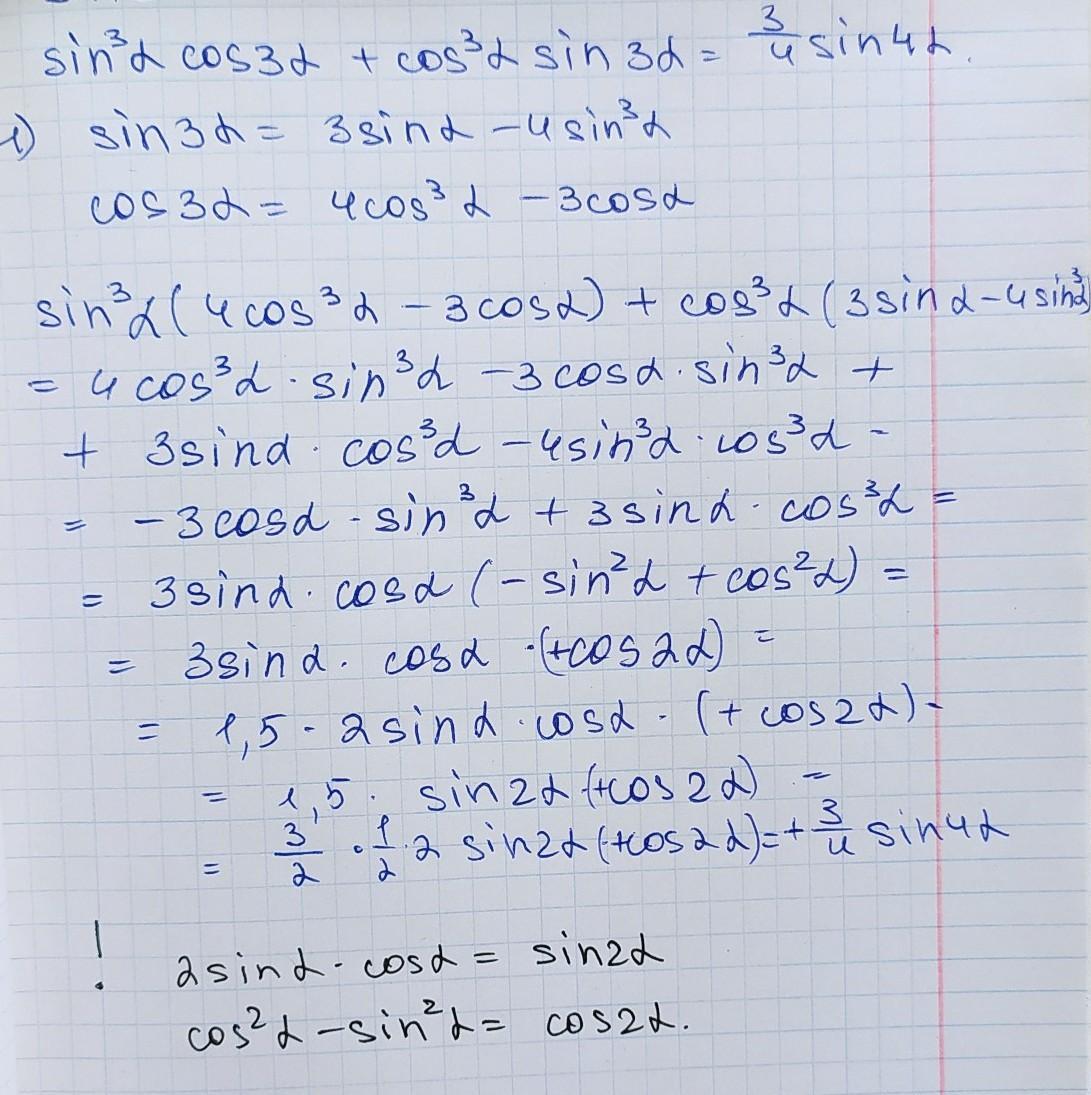 sin³α cos3α + cos³α sin 3α = 3/4 sin4α.
1) sin3α = 3sinα - 4sin³α
cos3α = 4cos³α - 3cosα
sin³α(4cos³α - 3cosα) + cos³α(3sinα - 4sin³α)
= 4cos³α · sin³α - 3cosα · sin³α +
+ 3sinα · cos³α - 4sin³α · cos³α =
= -3cosα · sin³α + 3sinα · cos³α =
= 3sinα · cosα (-sin²α + cos²α) =
= 3sinα · cosα · (+cos2α) =
= 1,5 · 2sinα · cosα · (+cos2α) =
= 1,5 · sin2α (+cos2α) =
= 3/2 · 1/2 · 2 sin2α (+cos2α) = + 3/4 sin4α
! 2sinα · cosα = sin2α
cos²α - sin²α = cos2α.